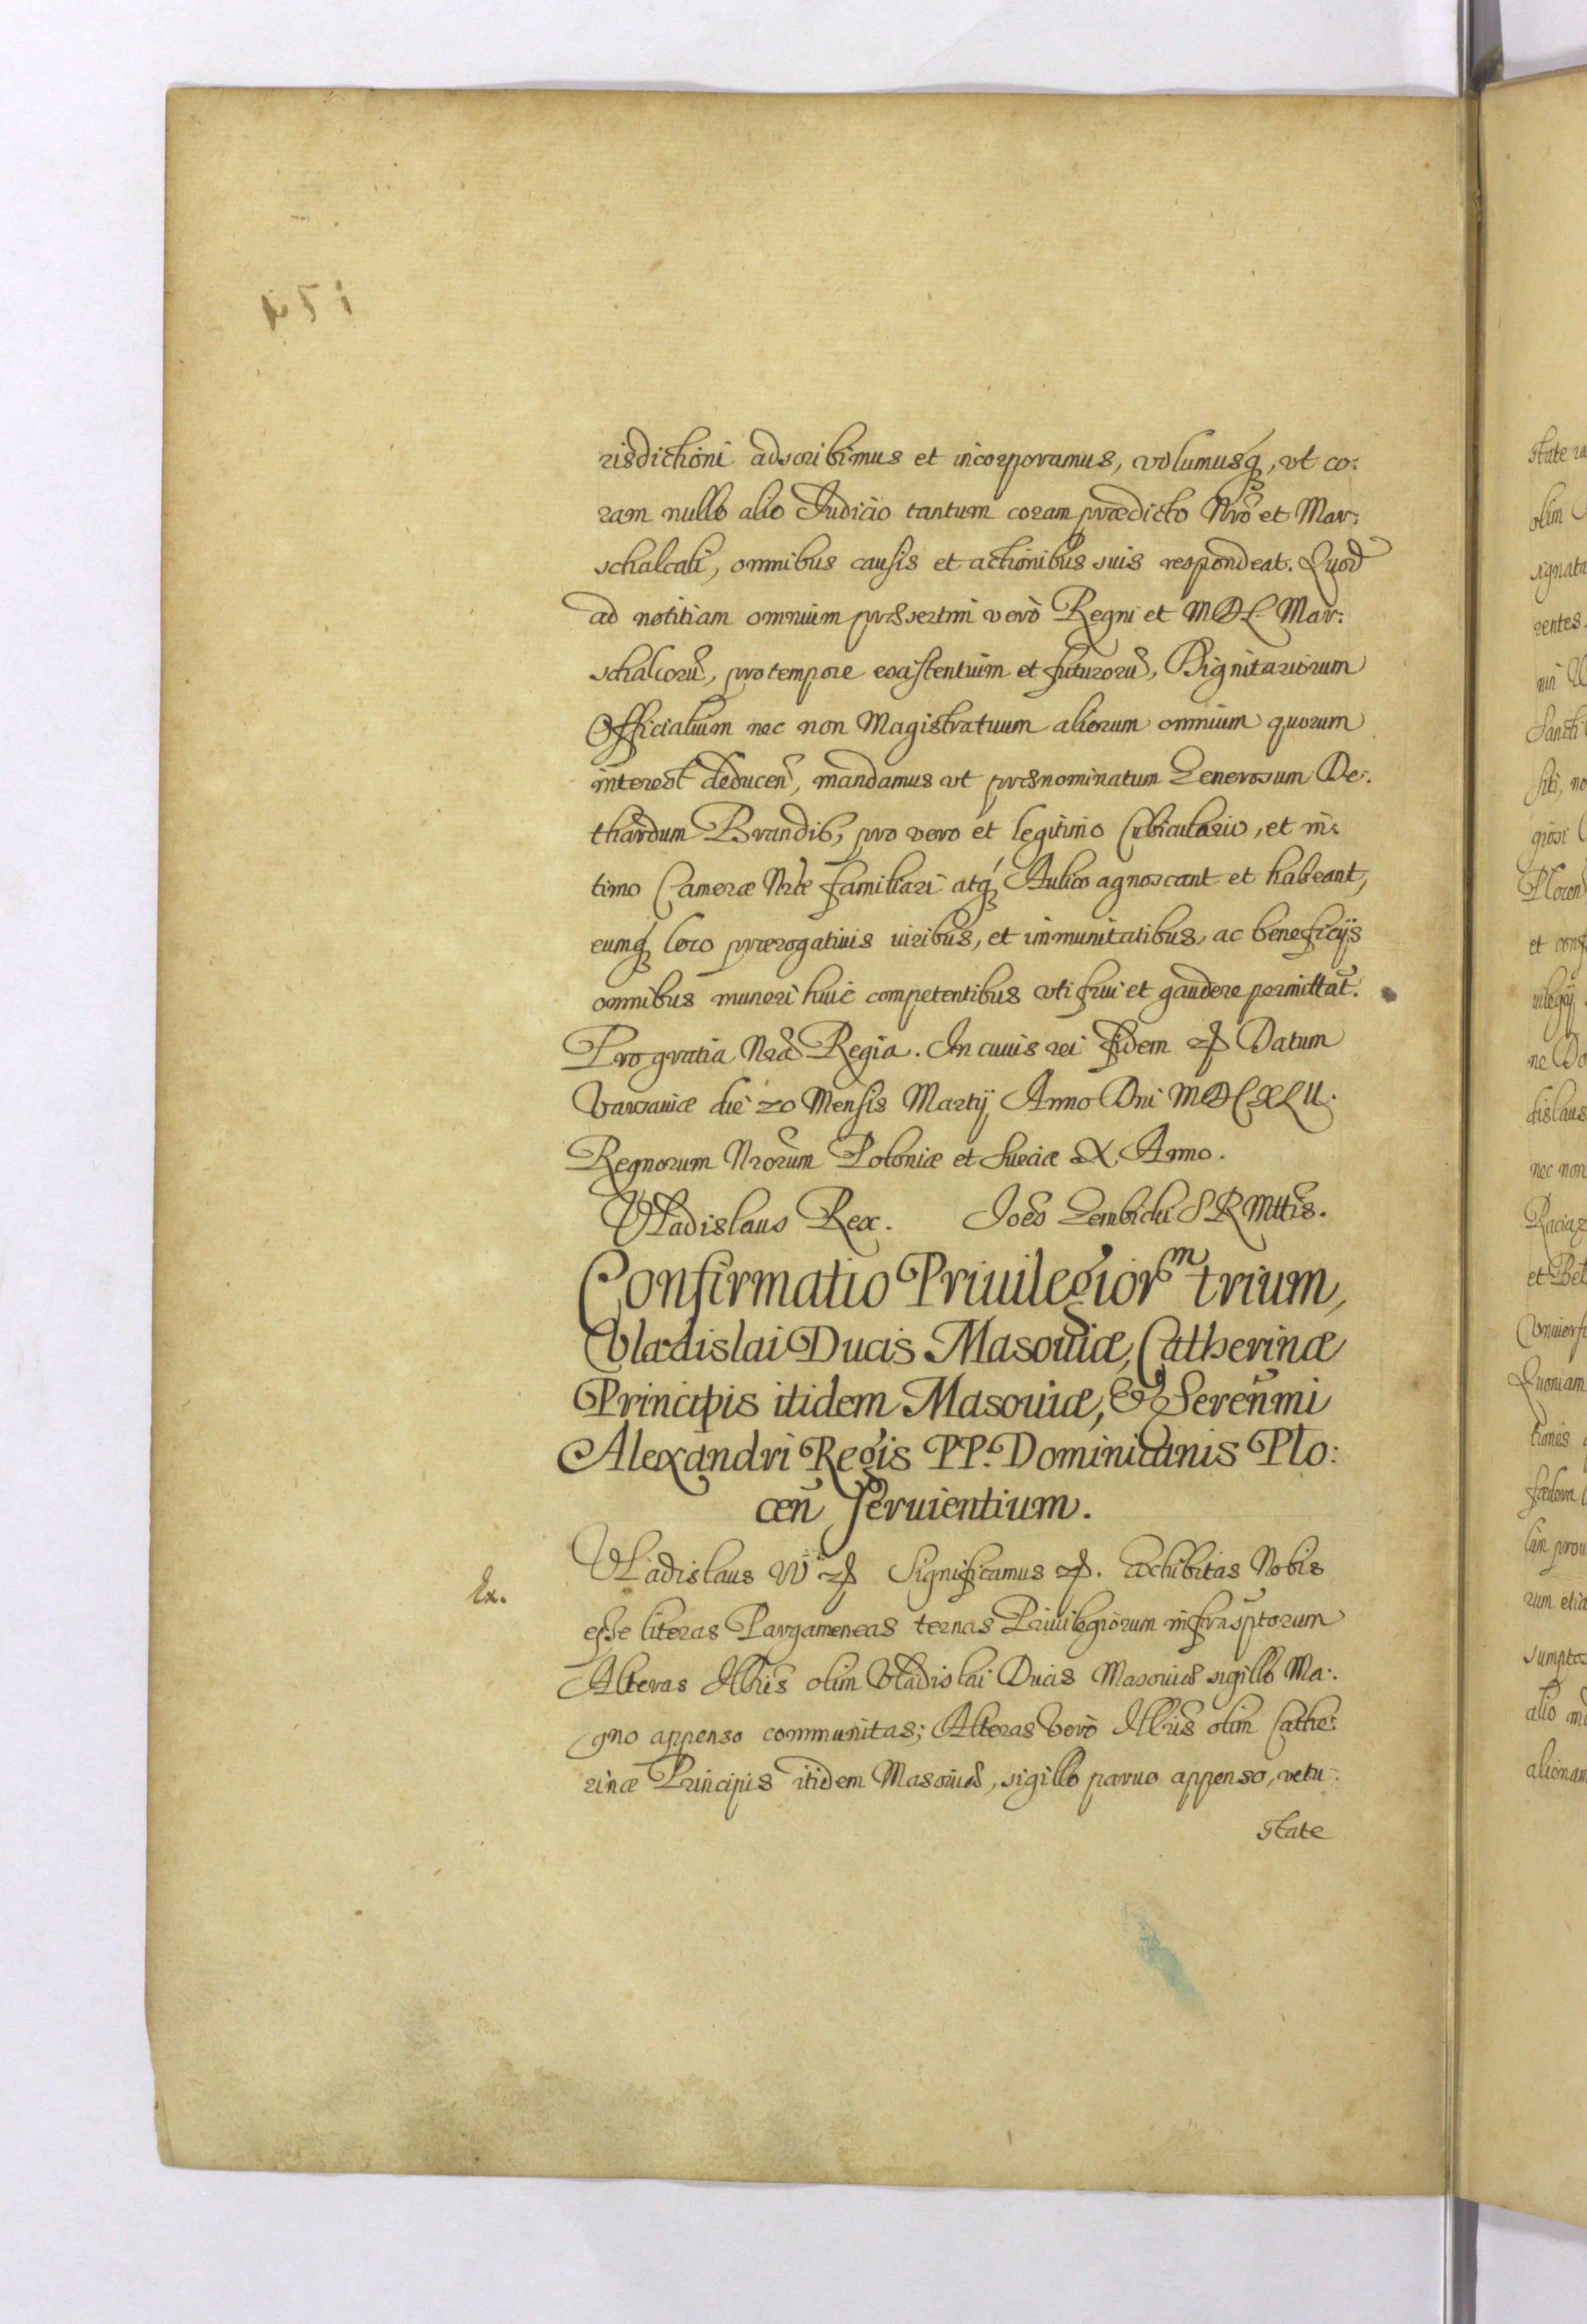 risdictioni adscribimus et incorporamus, volumusq, vt co:
ram nullo alio Judicio tantum coram prædicto Nrõ et Mar:
schalcali, omnibus causis et actionibus suis respondeat. Quod
ad notitiam omnium præsertim verò Regni et MDL Mar:
schalcorũ, pro tempore existentium et futurorũ, Dignitariorum
Officialium nec non Magistratuum aliorum omnium quorum
interest deducen̄, mandamus vt prænominatum Generosum De:
thardum Brandis, pro vero et legitimo Cubiculario, et in:
timo Cameræ Nrãe familiari atq́ Aulico agnoscant et habeant,
eumq́ loco prærogatiuis iuribus, et immunitatibus, ac beneficijs
omnibus muneri huic competentibus vti frui et gaudere permittãt.
Pro gratia Nrã Regia. In cuius rei fidem Datum
Varsauiæ die 20 Mensis Martij Anno Dni MDCXLII.
Regnorum Nrorũm Poloniæ et Sueciæ X Anno.
Vladislaus Rex. Joẽs Gembicki S R Mttis.
Confirmatio Priuilegior̃m trium,
Vladislai Ducis Masouiæ, Catherinæ
Principis itidem Masouiæ, & Serenm̃i
Alexandri Regis PP. Dominicanis Plo:
cen̄ seruientium.
Ex.
Vladislaus IV Significamus. Exhibitas Nobis
esse literas Pargameneas ternas Priuilegiorum infrasp̃torum
Alteras Illris̃ olim Vladislai Ducis Masouiæ sigillo Ma:
gno appenso communitas; Alteras Verò Illris̃ olim Cathe:
rinæ Principis itidem Masouiæ, sigillo paruo appenso, vetu:
state